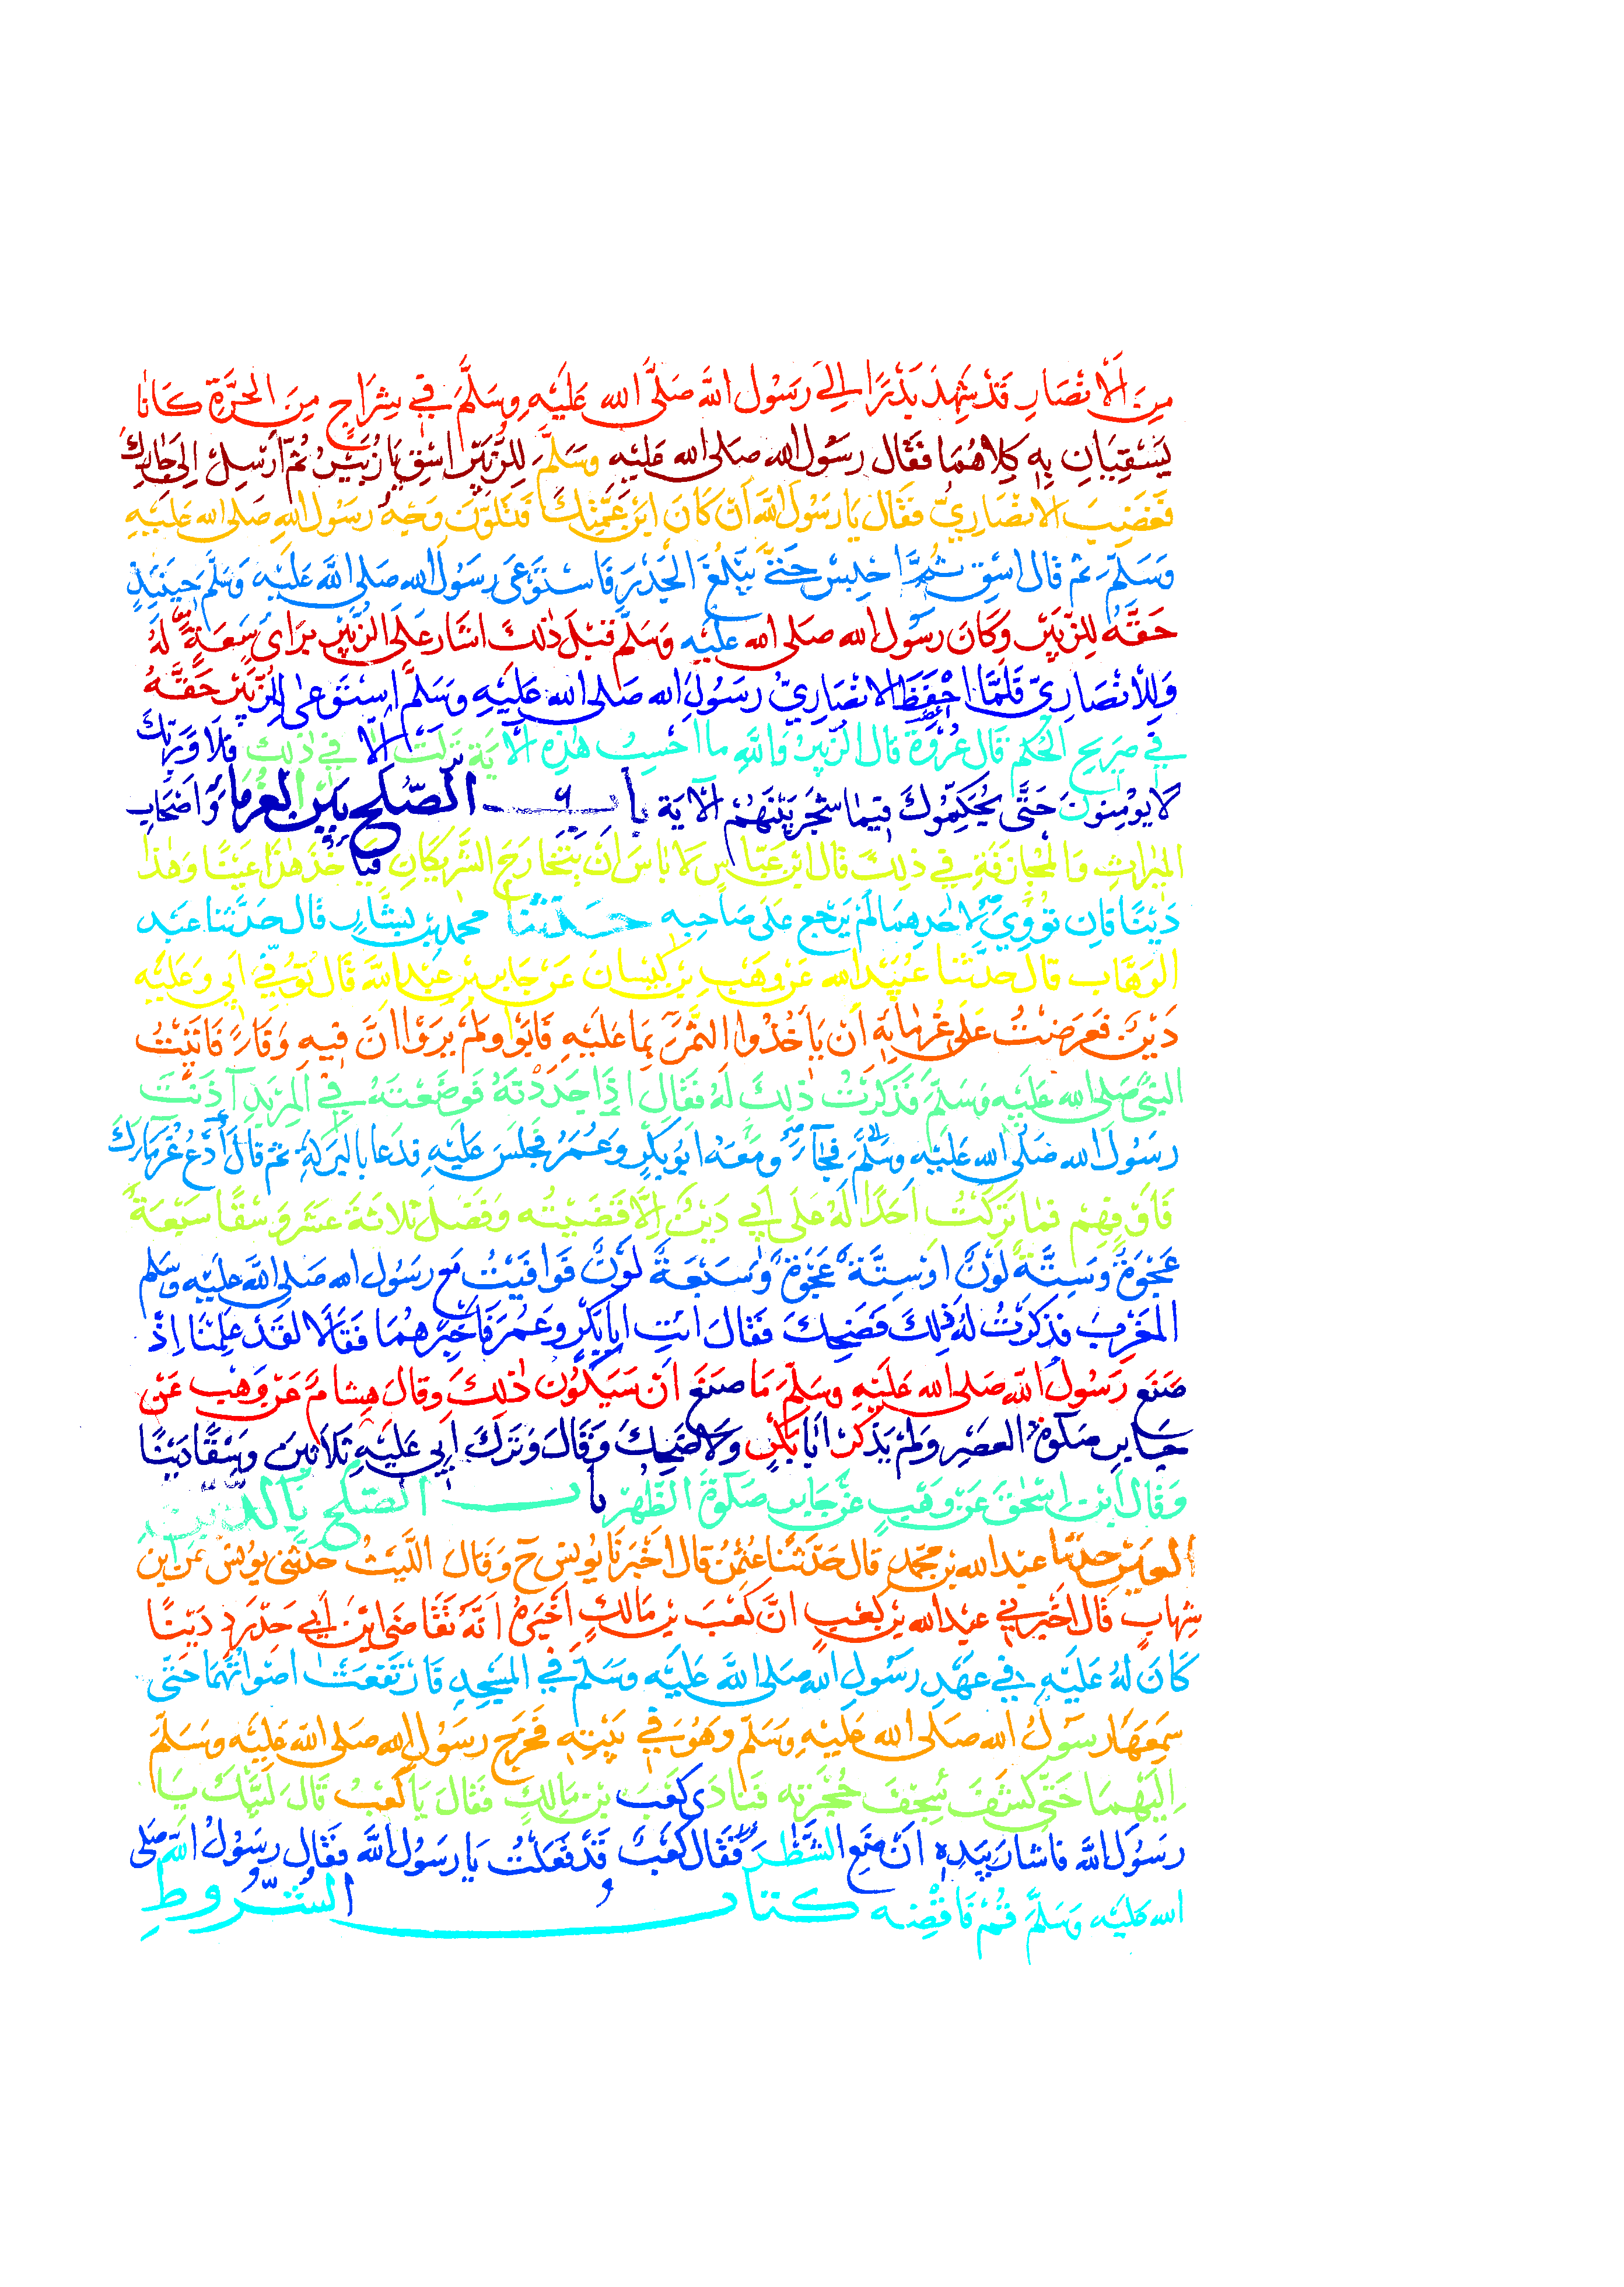 مِنَ الْانْصَارِ قَدْ شَهِدَ بَدْرًا اِلٰى رَسُوْلِ اللهِ صَلَّى الله عَلَيْهِ وَسَلَّمَ فِيْ شِرَاجٍ مِنَ الْحَرَّةِ كَانَا
يَسْقِيَانِ بِهٖ كِلَاهُمَا فَقَال رَسُوْل الله صَلى الله عَلَيْهِ وَسَلَّمَ لِلزُّبَيْرِ اسْقِ يَا زُبَيْرُ ثُمَّ اَرْسِلْ اِلى جَارِكَ
فَغَضِبَ الانْصَارِيُّ فقَال يَا رَسُوْلَ اللّٰهِ اَنْ كَانَ ابْنَ عَمَّتِكَ فَتَلَوَّنَ وَجْهُ رَسُوْل اللهِ صَلى الله عَلَيْهِ
وَسَلَّمَ ثم قَال اسْقِ ثُمَّ احْبِسْ حَتّٰى يَبْلُغَ الْجَدْرَ فَاسْتَوْعٰى رَسُوْلُ الله صَلى اللّٰه عَلَيْهِ وَسَلَّمَ حِيْنَئِذٍ
حَقَّهُ لِلزُّبَيْرِ وَكَانَ رَسُوْل الله صَلى الله عَلَيْهِ وَسَلَّمَ قَبْلَ ذٰلِكَ اشَار عَلَى الزُّبَيْرِ بِرَاْىٍ سَعَةٍ لَهُ
وَلِلْانْصَارِيِّ فَلَمَّا احْفَظَ الانْصَارِيُّ رَسُوْلَ الله صَلى الله عَلَيْهِ وَسَلَّمَ اسْتَوْعٰى لِلزُّبَيْرِ حَقَّهُ
فِيْ صَرِيْحِ الْحُكْمِ قَال عُرْوَةُ قَال الزُّبَيْرُ وَاللّٰهِ ما احْسِبُ هٰذِهِ الْاٰيَةَ نَزَلَتْ اِلَّا فِيْ ذٰلِكَ فَلَا وَرَبِّكَ
لَا يُوْمِنُوْنَ حَتّٰى يُحَكِّمُوْكَ فِيْما شَجَرَ بَيْنَهُمْ الْاٰيَة بَابُ الصُّلْحِ بَيْنَ الْغُرَمَاءِ وَاَصْحَابِ
الْمِيْرَاثِ وَالْمُجَازَفَةِ فِيْ ذٰلِكَ قَال ابْن عَبَّاس لَا بَاْسَ اَنْ يَتَخَارَجَ الشَّرِيْكَانِ فَيَاْخُذَ هٰذَا عَيْنًا وَهٰذَا
دَيْنًا فَاِن تَوِيَ لِاَحَدِهِمَا لَمْ يَرْجِع عَلَى صَاحِبِه حَدَّثَنَا محمد بْن بَشَّارٍ قَال حَدَّثَنا عَبْد
الْوَهَّاب قَال حَدَّثَنا عُبَيْد الله عَن وَهْبِ بْنِ كَيْسَانَ عَنْ جَابِرِ بْنِ عَبْدِ اللّٰه قَال تُوُفِّيَ اَبِي وَعَلَيْهِ
دَيْنٌ فَعَرَضْتُ عَلى غُرَمَائِهٖ اَنْ يَاْخُذُوا التَّمْرَ بِمَا عَلَيْهِ فَاَبَوْا وَلَمْ يَرَوْا اَنَّ فِيْهِ وَفَاءً فَاَتَيْتُ
النَّبِيَّ صَلى الله عَلَيْهِ وَسَلَّمَ فَذَكَرْتُ ذٰلِكَ لَهُ فَقَال اِذَا جَدَدْتَهُ فَوَضَعْتَهُ فِي الْمِرْبَدِ اٰذَنْتَ
رَسُوْلَ الله صَلى الله عَلَيْهِ وَسَلَّمَ فَجَاءَ وَمَعَهُ اَبُوْبَكْرٍ وَعُمَرُ فَجَلَسَ عَلَيْهِ فَدَعَا بِالْبَرَكَةِ ثمَّ قَال ادْعُ غُرَمَاءَكَ
فَاَوْفِهِمْ فَما تَرَكْتُ اَحَدًا لَهُ عَلَى اَبِيْ دَيْنٌ اِلَّا قَضَيْتُه وَفَضَلَ ثَلَاثَةَ عَشَرَ وَسْقًا سَبْعَةٌ
عَجْوَةٌ وَسِتَّةٌ لَوْنٌ اَوْ سِتَّةٌ عَجْوَةٌ وَسَبْعَةٌ لَوْنٌ فَوَافَيْتُ مَع رَسُوْلِ الله صَلى اللّٰه عَلَيْهِ وَسَلم
الْمَغْرِبَ فَذَكَرْتُ لَهُ ذٰلِكَ فَضَحِكَ فَقَالَ ائْتِ اَبَا بَكْرٍ وَعُمَرَ فَاَخْبِرْهُمَا فَقَالَا لَقَدْ عَلِمْنَا اِذْ
صَنَعَ رَسُوْلُ اللّٰه صَلى الله عَلَيْهِ وَسَلَّمَ مَا صَنَعَ اَنْ سَيَكُوْن ذٰلِكَ وَقَالَ هِشَامٌ عَنْ وَهْبٍ عَنْ
جَابِرٍ صَلٰوةَ الْعَصْرِ وَلَمْ يَذْكُرْ اَبَا بَكْرٍ وَلَا ضَحِكَ وَقَالَ وَتَرَكَ اَبِي عَلَيْهِ ثَلَاثِيْنَ وَسْقًا دَيْنًا
وَقَال ابْن اِسْحٰقَ عَنْ وَهْبٍ عَنْ جَابِرٍ صَلٰوةَ الظُّهْرِ بَابُ الصُّلْحِ بِالدَّيْنِ
وَالْعَيْنِ حَدَّثَنَا عَبْد الله بْن مُحَمَّدٍ قَال حَدَّثَنَا عُثْمٰنُ قَال اَخْبَرَنَا يُوْنُس ح وَقَال اللَّيْثُ حَدَّثَنِي يُوْنُسُ عَنِ ابْنِ
شِهَابٍ قَال اَخْبَرَنِيْ عَبْدُ الله بْن كَعْبٍ اَنَّ كَعْبَ بْنَ مَالِكٍ اَخْبَرَهُ اَنَّهُ تَقَاضَى ابْنَ اَبِيْ حَدْرَدٍ دَيْنًا
كَانَ لَهُ عَلَيْهِ فِيْ عَهْدِ رَسُوْلِ اللّٰهِ صَلى اللّٰه عَلَيْهِ وَسَلَّمَ فِي الْمَسْجِدِ فَارْتَفَعَتْ اَصْوَاتُهُمَا حَتّٰى
سَمِعَهَا رَسُوْلُ اللّٰه صَلَّى الله عَلَيْهِ وَسَلَّمَ وَهُوَ فِيْ بَيْتِهٖ فَخَرَجَ رَسُوْل اللّٰه صَلى اللّٰه عَلَيْهِ وَسَلَّمَ
اِلَيْهِمَا حَتّٰى كَشَفَ سِجْفَ حُجْرَتِه فَنَادٰى كَعْبَ بْن مَالِكٍ فَقَال يَا كَعْبُ قَالَ لَبَّيْكَ يَا
رَسُوْلَ اللّٰه فَاشَارَ بِيَدِهٖ اَنْ ضَعِ الشَّطْرَ فَقَال كَعْبٌ قَدْ فَعَلْتُ يَا رَسُوْلَ اللّٰه فَقَال رَسُوْلُ اللّٰه صَلى
الله عَلَيْهِ وَسَلَّمَ قُمْ فَاقْضِه كِتَابُ الشُّرُوْطِ